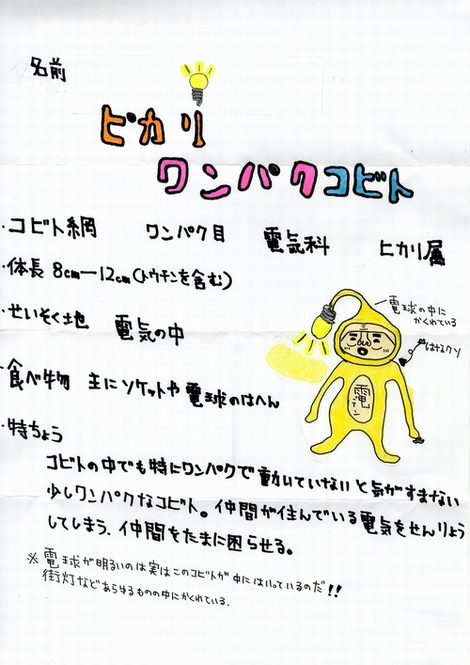 名前
ピカリ
ワンパクコビト
・コビト網 ワンパク目 電気科 ヒカリ属
・体長 8cm―12cm(トウチンを含む)
・せいそく地 電気の中
電球の中に
かくれている
はなクソ
電
・食べ物 主にソケットや電球のはへん
・特ちょう
コビトの中でも特にワンパクで動いていないと気がすまない
少しワンパクなコビト。仲間が住んでいる電気をせんりょう
してしまう。仲間をたまに困らせる。
※電球が明るいのは実はこのコビトが中にはいっているのだ!!
街灯などあらゆるものの中にかくれている.